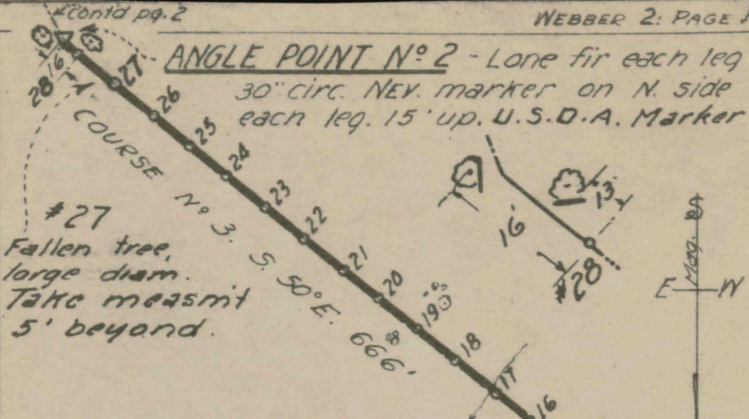 Cont'd pg. 2
WEBBER 2: PAGE
ANGLE POINT Nº 2 - Lone fir each leg
30" circ. NEV. marker on N. side
each leg. 15' up. U.S.D.A. Marker
28
16'
27
26
25
24
23
22
21
20
19
18
17
16
COURSE Nº 3. S. 50° E. 666'
#27
Fallen tree,
large diam.
Take measm't
5' beyond.
16'
13'
#28
Mag.
E W